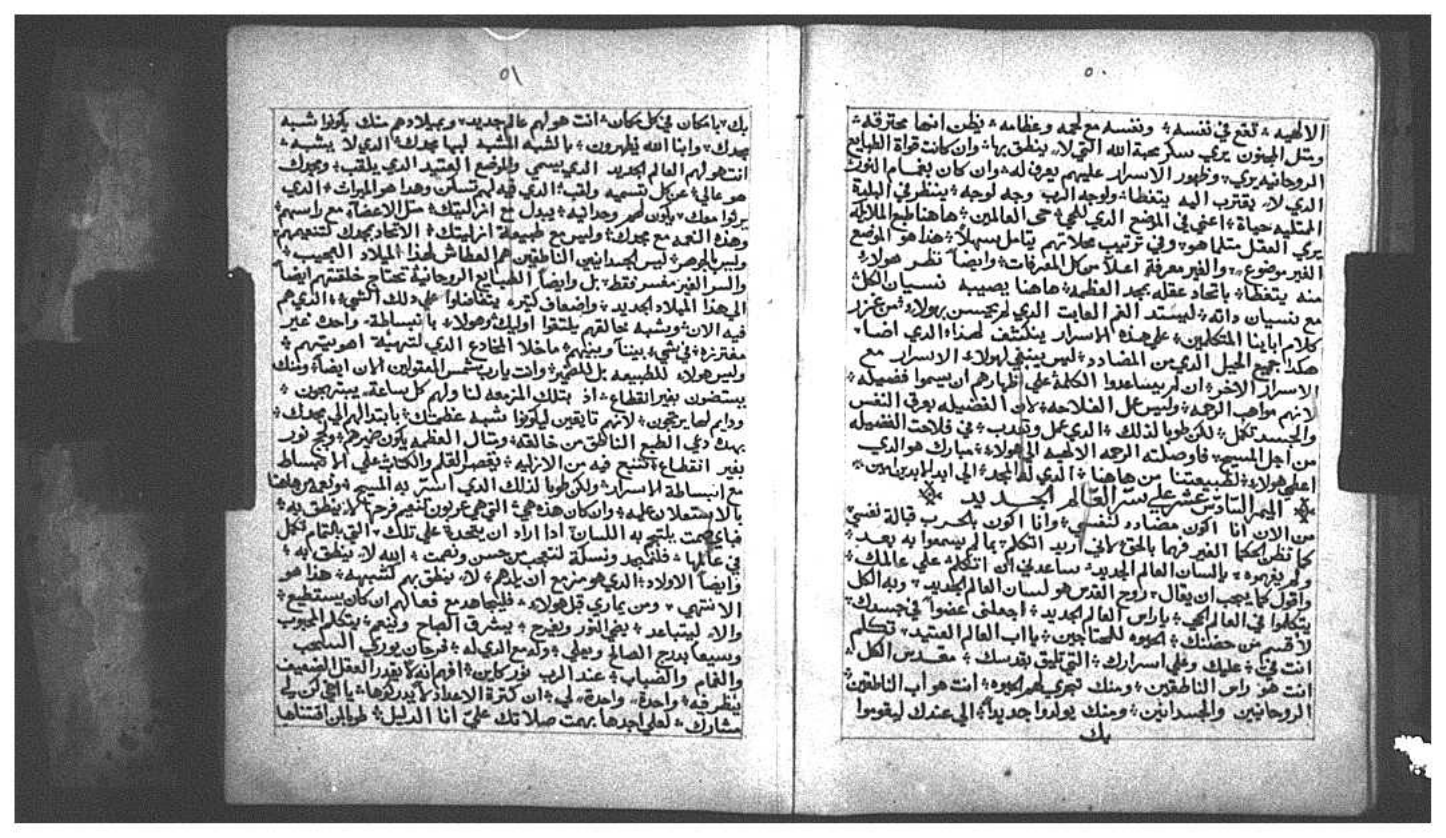 ٥٠
الالهيه ÷ تقع في نفسه ÷ ونفسه مع لحمه وعظامه ÷ يظن انها محترقه ÷
ومتل المجنون يري سكر محبة الله التي لا ينطق بها ÷ وان كانت قواة الطبايع
الروحانيه يري ÷ وظهور الاسرار عليهم يعرف له ÷ وان كان بغمام النور
الدي لا يقترب اليه يتغطا ÷ ولوجه الرب وجه لوجه ÷ ينظر في البلدة
الممتليه حياة ÷ اعني في الموضع الدي للحي ÷ حي العالمين ÷ هاهنا طبع الملايكه
يري العقل متلما هو ÷ وفي ترتيب محلاتهم يتامل سهلا ÷ هذا هو الموضع
الغير موضوع ÷ والغير معرفة اعلا من كل المعرفات ÷ وايضا نظر هولاء
منه يتغطا ÷ باتحاد عقله بمجد العظمه ÷ هاهنا يصيبه نسيان الكل
مع نسيان داته ÷ ليستد الفم العايت الدي لم يحسن بهولاء ÷ من غزر
كلام ابايبنا المتكلمين ÷ علي هده الاسرار ينكشف لهداء الدي اضاء
هكدا جميع الحيل الدي من المضادد ÷ ليس ينبغي لهولاء الاسرار مع
الاسرار الاخر ÷ ان لم يساعدوا الكلمة علي اظهارهم ان يسموا فضيله ÷
لانهم مواهب الرحمه ÷ وليس عمل الفلاحه ÷ لان الفضيله بعرق النفس
والجسد تكمل ÷ لكن طوبا لدلك ÷ الدي عمل وتعب ÷ في فلاحت الفضيله
من اجل المسيح ÷ فاوصلته الرحمه الالهيه الي هولاء ÷ مبارك هو الدي
اعطي هولاء ÷ لطبيعتنا من هاهنا ÷ الدي له المجد ÷ الي ابد الابدين امين ÷
الميمر السادس عشر علي سر العالم الجديد
من الان انا اكون مضادد لنفسي ÷ وانا اكون بالحرب قبالة نفسي
كما تظن الحكما الغير فهما بالحق ÷ لاني اريد اتكلم ÷ بما لم يسمعوا به بعد ÷
ولم يفهموه ÷ بلسان العالم الجديد ÷ ساعدني ان اتكلم ÷ علي عالمك ÷
واقول كما يجب ان يقال ÷ روح القدس هو لسان العالم الجديد ÷ وبه الكل
يتكلموا في العالم الحي ÷ ياراس العالم الجديد ÷ اجعلني عضوا في جسدك ÷
لاقسم من حضنك ÷ الحيوه للمحتاجين ÷ يااب العالم العتيد ÷ تكلم
انت في ÷ عليك وعلي اسرارك ÷ التي تليق بقدسك ÷ مقدس الكل ÷
انت هو راس الناطقين ÷ ومنك تجري لهم الحيوه ÷ انت هو اب الناطقين
الروحانيين والجسدانين ÷ ومنك يولدوا جديدا ÷ الي عندك ليقوموا
بك
٥١
بك ÷ يامكان في كل مكان ÷ انت هو لهم عالم جديد ÷ وبميلادهم منك يكونوا شبه
مجدك ÷ وابنا الله يظهرون ÷ بالشبه المشبه لبها مجدك ÷ الدي لا يشبه ÷
انت هو لهم العالم الجديد الدي يسمي والموضع العتيد الدي يلقب ÷ ومجدك
هو عالي ÷ عن كل تسميه ولقب ÷ الدي فيه لهم تسكن وهدا هو الميراث ÷ الدي
يرثوا معك ÷ يكون لهم وحدانيه ÷ يبدل مع ازليتك ÷ متل الاعضاء مع راسهم ÷
وهده النعمه مع مجدك ÷ وليس مع طبيعة ازليتك ÷ الاتحاد بمجدك لتنعيمهم
وليس بالجوهر ÷ ليس الجسدانين الناطقين هم العطاش لهدا الميلاد العجيب ÷
والسر الغير مفسر فقط ÷ بل وايضا الطبايع الروحانية تحتاج خلقتهم ايضا
الي هدا الميلاد الجديد ÷ واضعاف كتيره يتفاضلوا علي دلك الشي ÷ الدي هم
فيه الان ÷ وبشبه خالقهم يلتقوا اوليك وهولاء ÷ بانبساطة ÷ واحد غير
مفترزه ÷ في شي ÷ بيننا وبينهم ÷ ماخلا المخادع الدي لتهيئة اهويتهم ÷
وليس هولاء للطبيعه بل للضمير ÷ وانت يارب شمس المعقولين الان ايضا ÷ ومنك
يستضون بغير انقطاع ÷ اد بتلك المزمعه لنا ولهم كل ساعه يبتهجون ÷
ودايم لها يرتجون ÷ لانهم تايقين ليكونوا شبه عظمتك ÷ بابتدالهم الي مجدك ÷
بهدا دعي الطبع الناطق من خالقه ÷ ومتال العظمه يكون ضميرهم ÷ ولج نور
بغير انقطاع ÷ تنبع فيه من الازليه ÷ يقصر القلم والكتاب علي الانبساط
مع انبساطة الاسرار ÷ ولكن طوبا لدلك الدي استتر به المسيح ÷ ونعم من هاهنا
بالاستعلان عليه ÷ وان كان هده هي ÷ التي هي عربون لنعيم فرحهم لا ينطق به ÷
فباي صمت يلتجم به اللسان ادا اراد ان يتحدث علي تلك ÷ التي بالتمام تكمل
في عالمها ÷ فلنمجد ونسكت لنتعجب من حسن ونصمت ÷ ابنه لا ينطق به ÷
وايضا الاولاد ÷ الدي هو مزمع ان يلدهم ÷ لا ينطق بهم لشبهه ÷ هدا هو
الانتهي ÷ ومن يماري قبل هولاء ÷ فليجاهد مع فعالهم ان كان يستطيع ÷
والا ليتباعد ÷ يضي النور ويفرح ÷ يشرق الصباح وينعم ÷ يتكلم المحبوب
وبسيعا يدرج الصالح ويعلي ÷ وكه مع الدي له ÷ فرحان يوري السليحب
والغام والضباب ÷ عند الرب نور كاين ÷ افهم انه لا يقدر العقل الضعيف
ينظر فيه ÷ واحدة واحدة لي ÷ ان كترة الاعداد لا يدركها ÷ يااخي كن لي
مشارك ÷ لعلي اجدها بهمت صلاتك علي انا الدليل ÷ طوبا لمن اقتناها